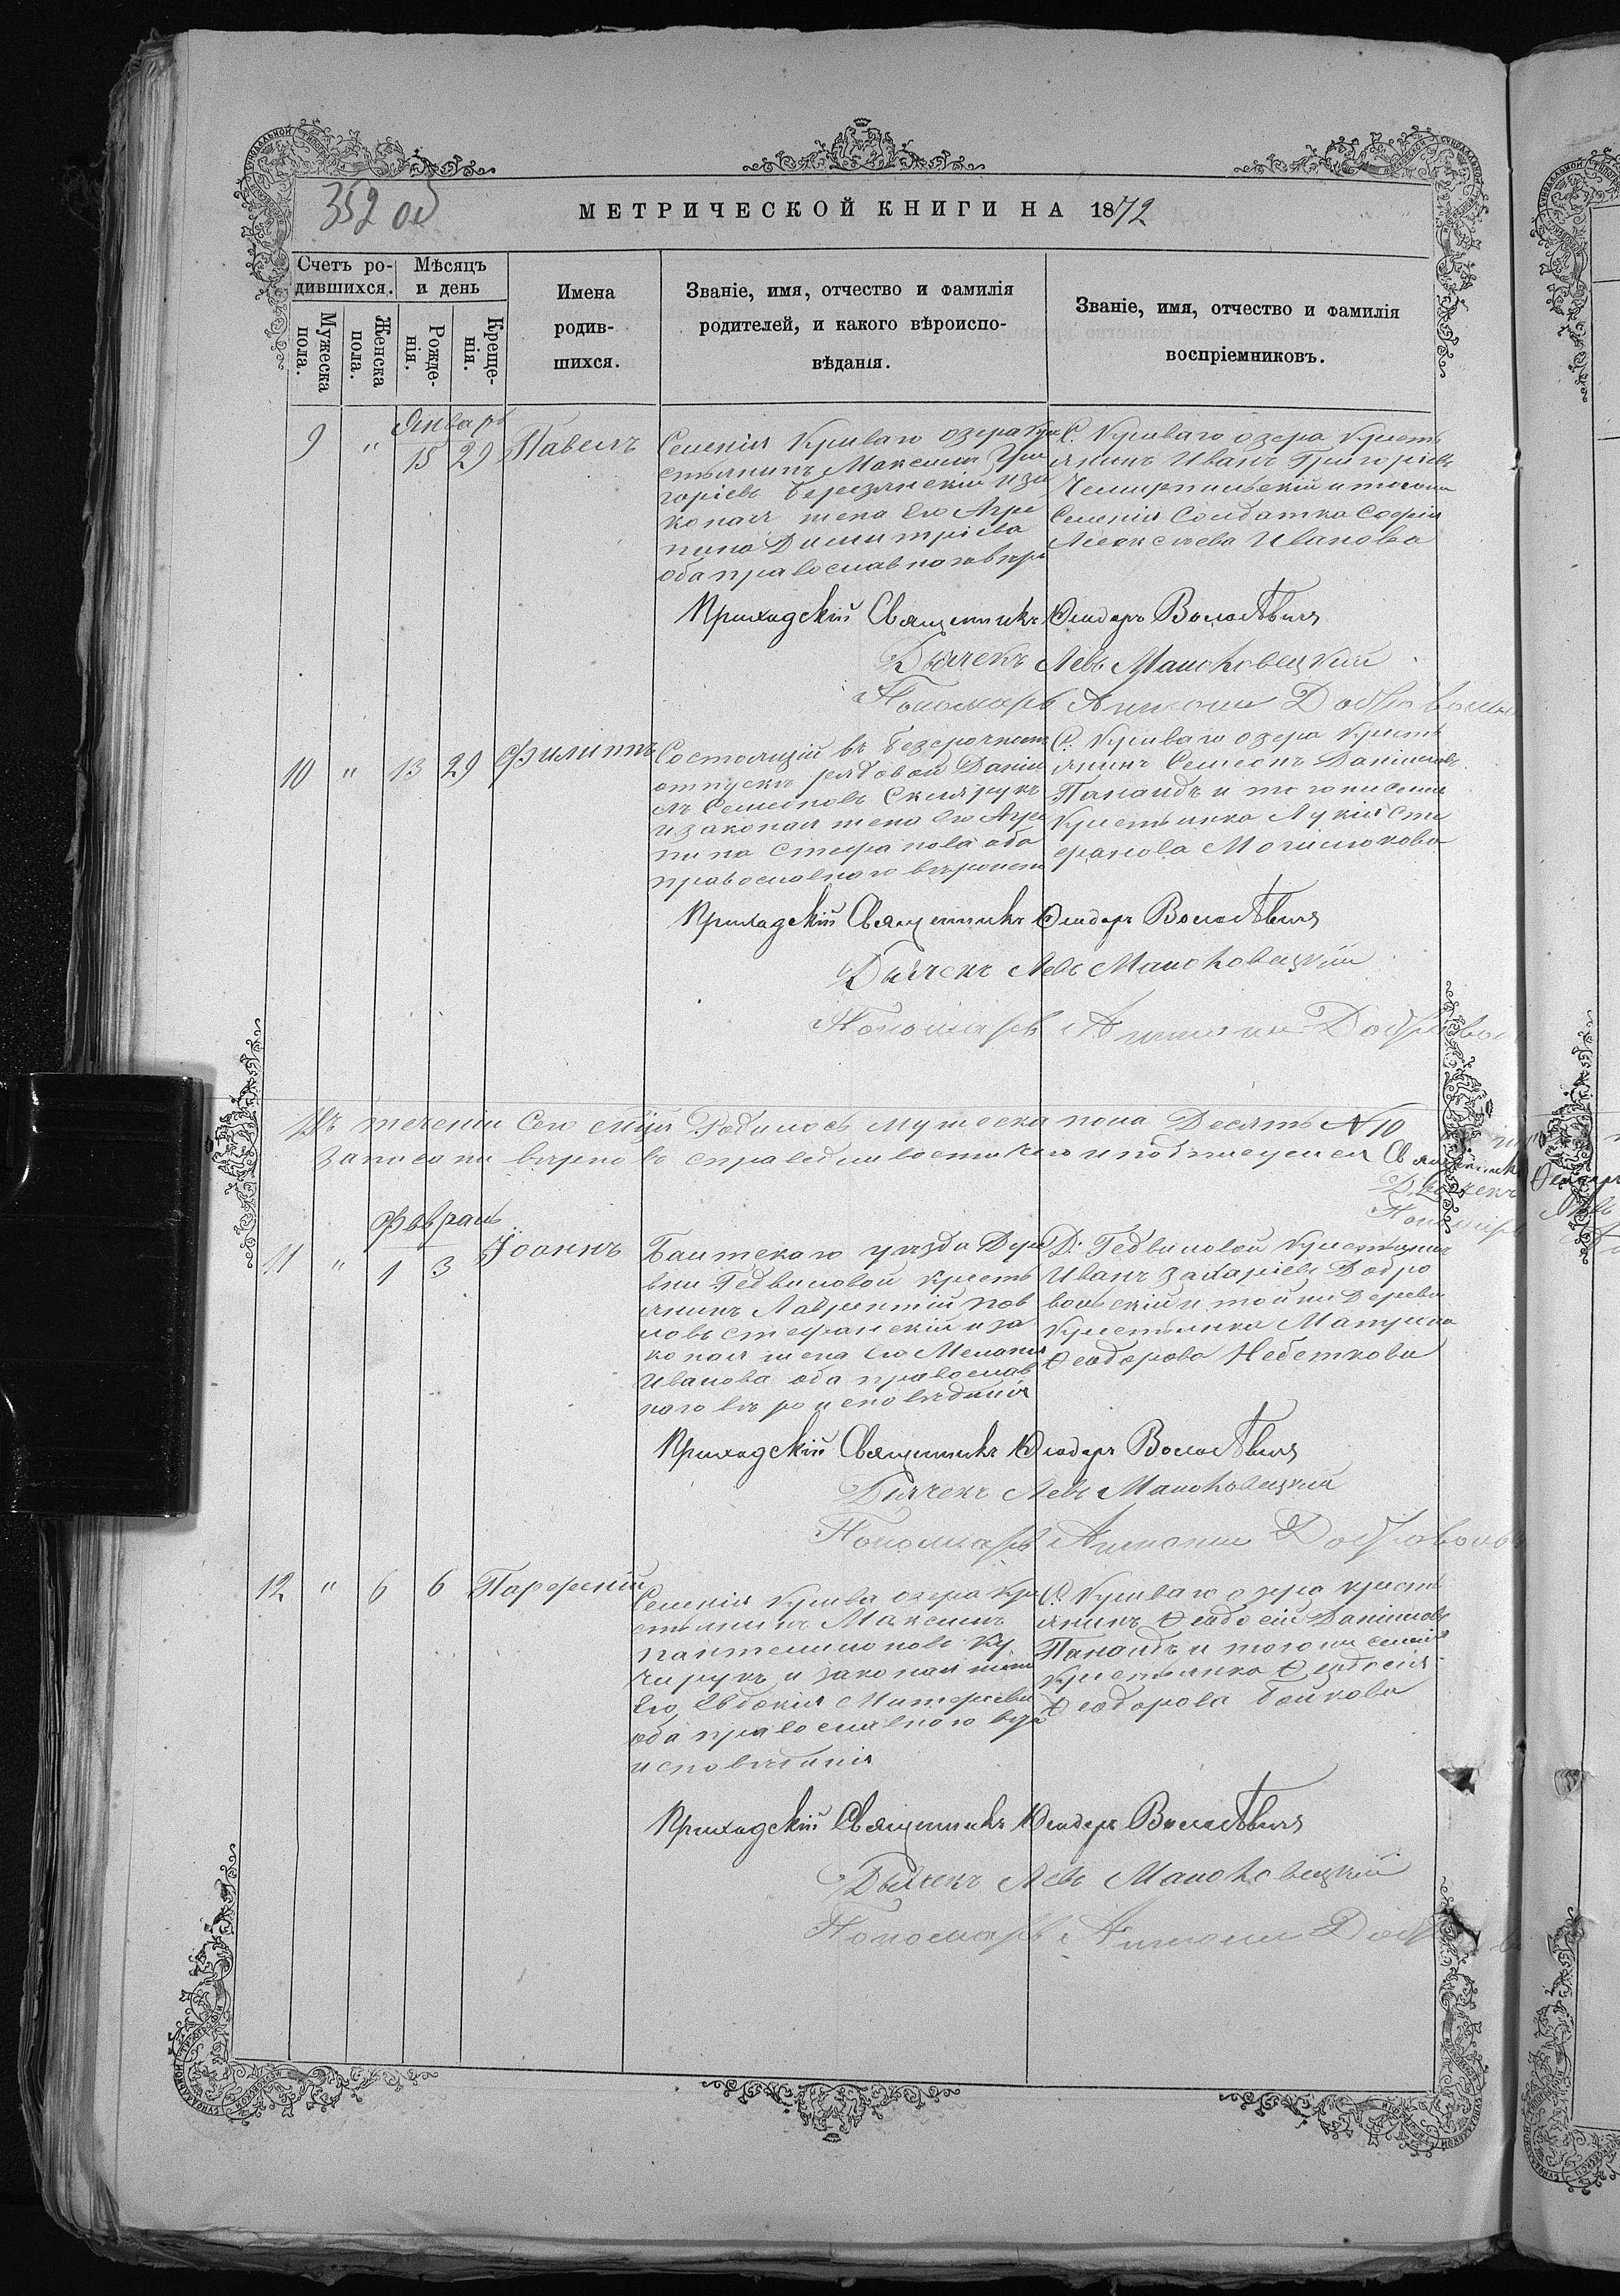 352 об
МЕТРИЧЕСКОЙ КНИГИ НА 1872
Счетъ ро-
дившихся.
Мѣсяцъ
и день
Мужеска
пола.
Женска
пола.
Рожде-
нія.
Креще-
нія.
Имена
родив-
шихся.
Званіе, имя, отчество и фамилія
родителей, и какого вѣроиспо-
вѣданія.
Званіе, имя, отчество и фамилія
воспріемниковъ.
Январь
9 " 15 29 Павелъ
Селенія Криваго озера Кре
стьянинъ Максим Гри
горіевъ Березянскій и за
коная жена его Агри
пина Димитріева
оба православного
С. Криваго озера Кресть
янинъ Иванъ Григоріевъ
Чемирпильскій и тогожъ
Селенія Солдатка Софія
Алексѣева Иванова
Приходскій Священникъ Ѳеодоръ
Дьячекъ Левъ Маньковецкій
Пономарь Антоній
10 " 13 29 Филиппъ
Состоящій въ безсрочномъ
отпускѣ рядовой Даніи
лъ Семеоновъ Склярукъ
и законая жена его Агри
пина Стефанова оба
православного вѣроисп
С. Криваго озера Кресть
янинъ Семеонъ Даніиловъ
и того же селен
Крестьянка Лукія Сте
фанова
Приходскій Священникъ Ѳеодоръ
Дьячекъ Левъ Маньковецкій
Пономарь Антоній
Въ теченіи сего мѣсяца Родилось мужеска пола Десять N 10
записани вѣрно въ справедливости чего и подписуемся Священникъ
Дьячекъ
Пономарь
Февраль
11 " 1 3 Іоаннъ
Балтскаго уѣзда Дере
вни Гедвиловой Кресть
янинъ Лаврентій Пав
ловъ Стефанскій и за
коная жена его Меланія
Иванова оба православ
ного вѣроисповѣданія
Д. Гедвиловой Крестьянинъ
Иванъ Захаріевъ Добро
вольскій и той же Деревн
Крестьянка Матрина
Ѳеодорова
Приходскій Священникъ Ѳеодоръ
Дьячекъ Левъ Маньковецкій
Пономарь Антоній
12 " 6 6 Парфеній
Селенія Крива озера Кре
стьянинъ Максимъ
Пантелимоновъ Ку
черукъ и законая жена
Его Евдокія
оба православного вѣро
исповѣданія
С. Криваго озера Кресть
янинъ Ѳеодосій Даніиловъ
и того же селенія
Крестьянка Ѳеодосія
Ѳеодорова Бойкова
Приходскій Священникъ Ѳеодоръ
Дьячекъ Левъ Маньковецкій
Пономарь Антоній